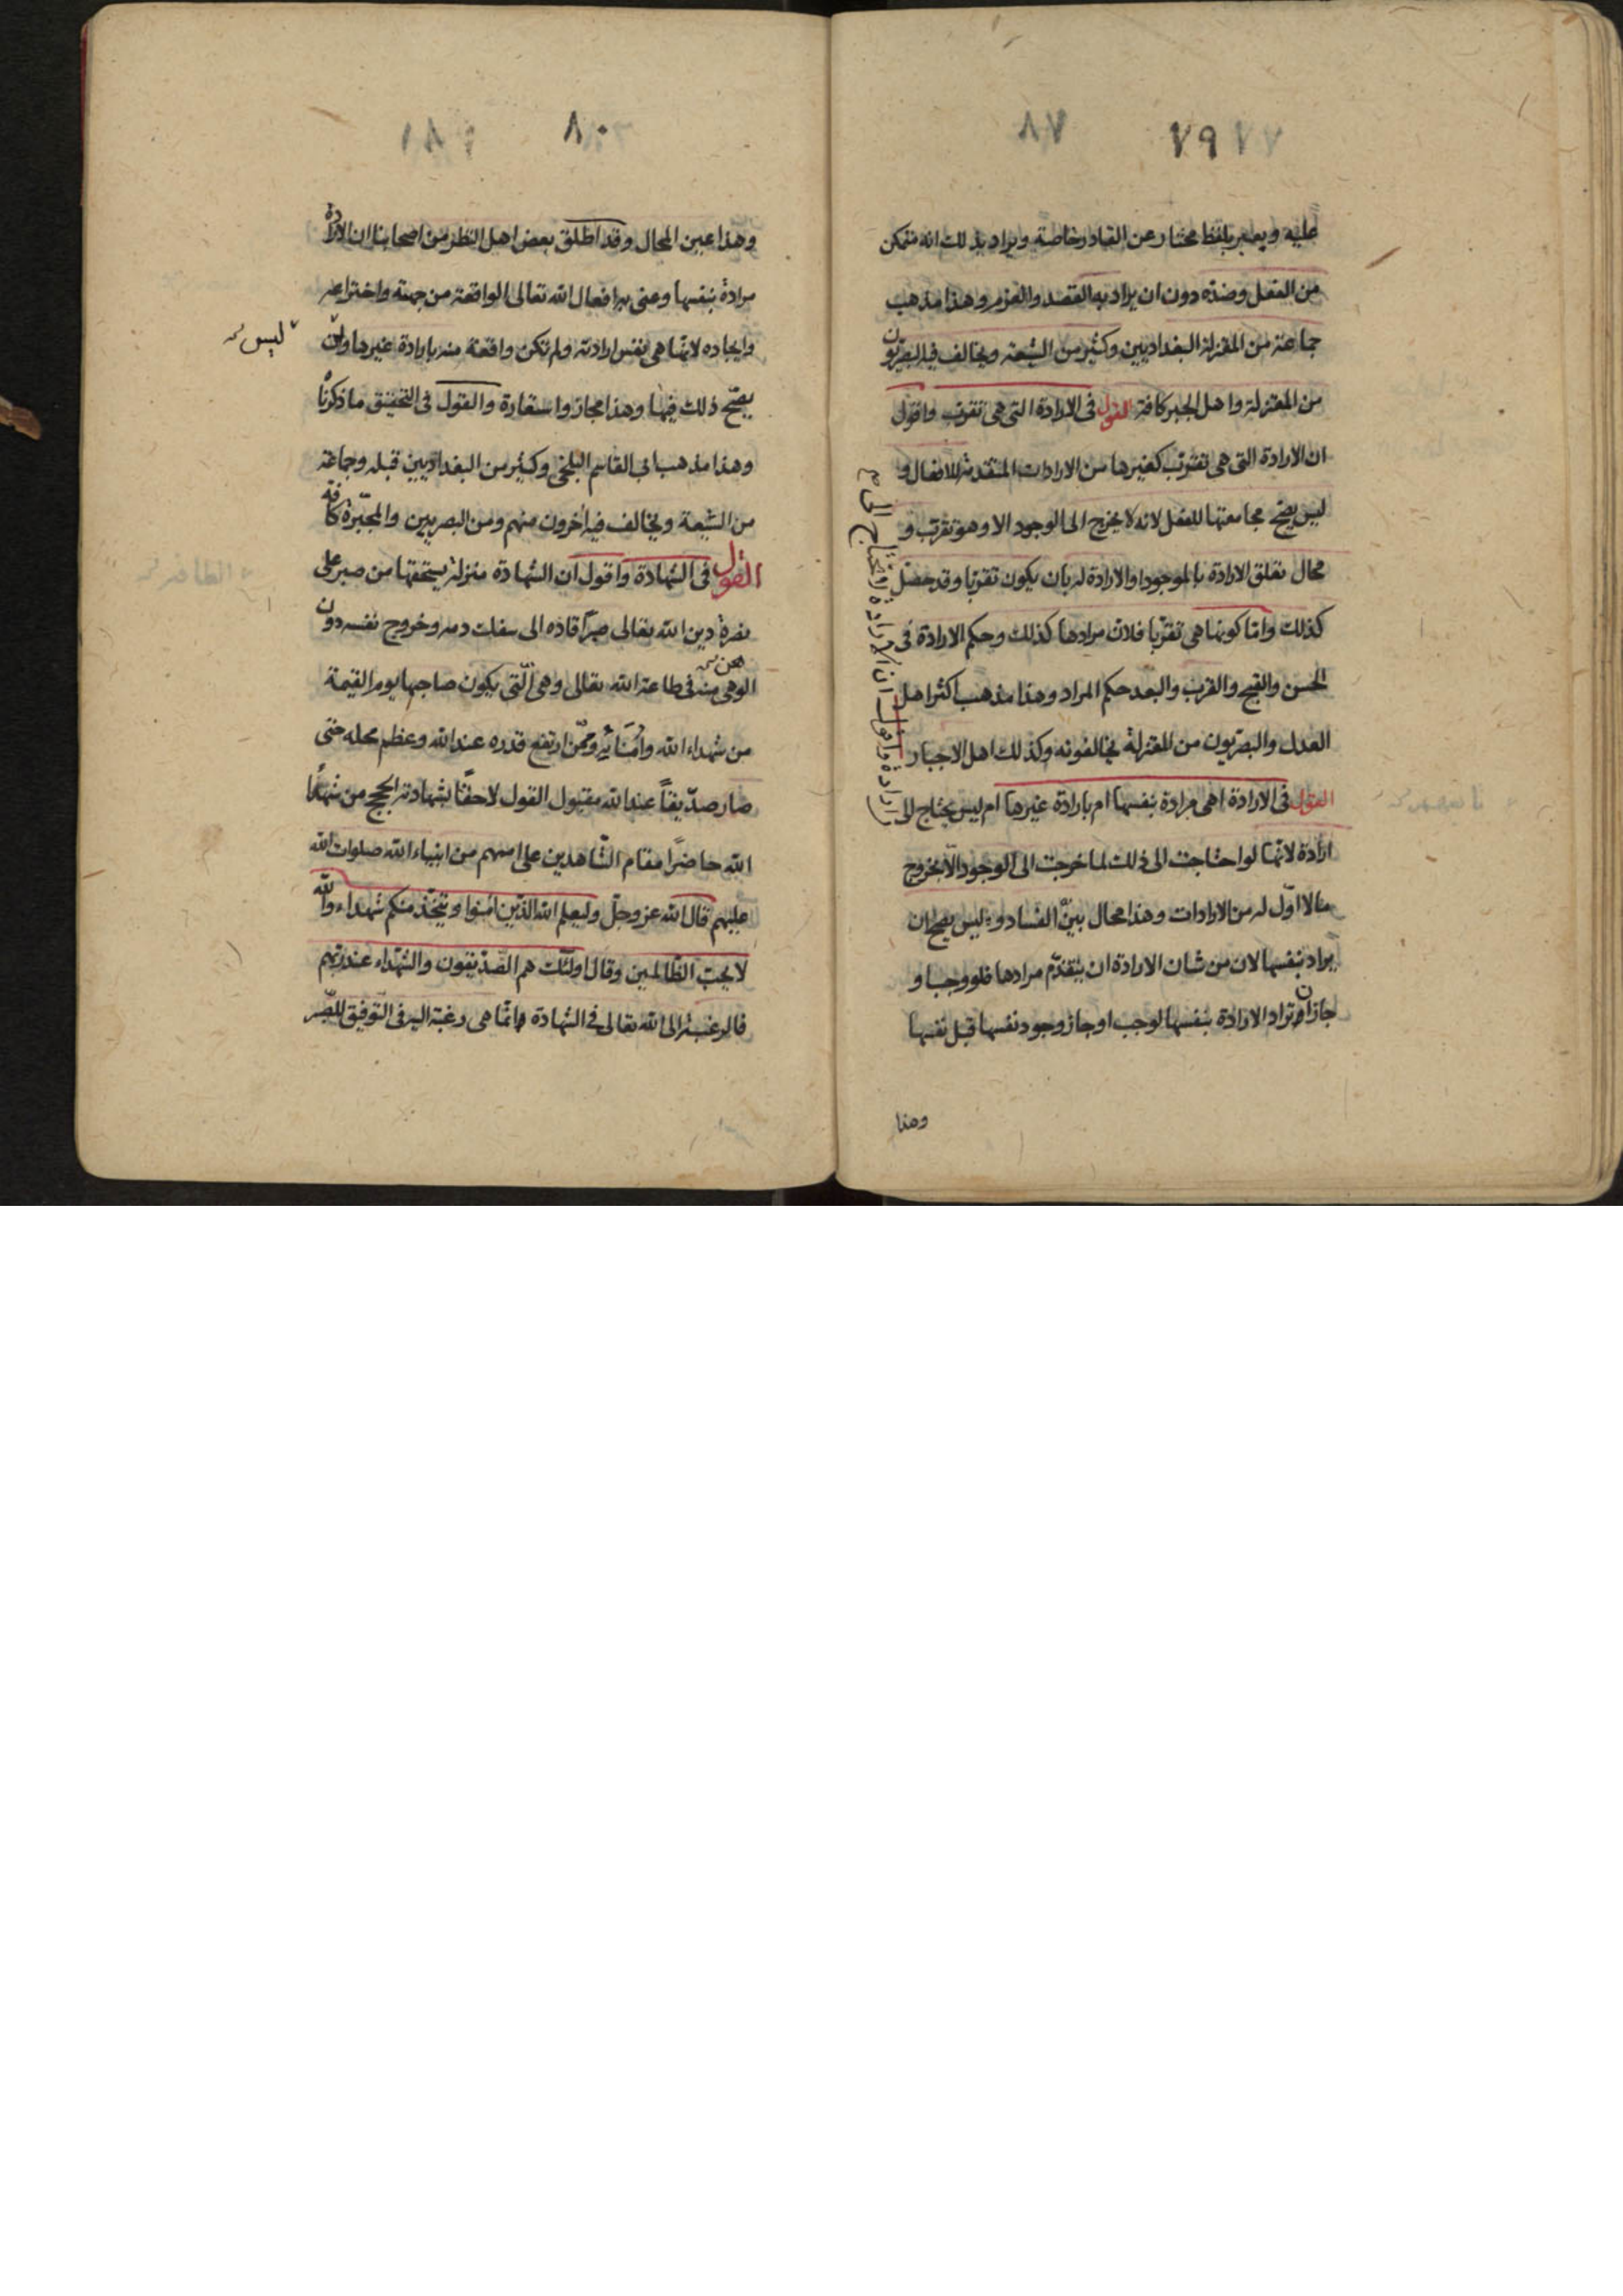 ٧٩
عليه ويعبر بلفظ مختار عن القادر خاصة ويراد بذلك انه متمكن
من الفعل وضده دون ان يراد به القصد والعزم وهذا مذهب
جماعة من المعتزلة البغداديين وكثير من الشيعة ويخالف فيه البصريون
من المعتزلة واهل الجبر كافة القول فى الارادة التى هى تقرب واقول
ان الارادة التى هى تقرب كغيرها من الارادات المتقدمة للافعال و
ليس يصح مجامعتها للفعل لانه لا يخرج الى الوجود الا وهو تقرب و
محال تعلق الارادة بالموجود او الارادة له بان يكون تقربا وقد حصل
كذلك واما كونها هى تقربا فلان مرادها كذلك وحكم الارادة فى
الحسن والقبح والقرب والبعد حكم المراد وهذا مذهب اكثر اهل
العدل والبصريون من المعتزلة يخالفونه وكذلك اهل الاجبار
القول فى الارادة اهى مرادة بنفسها ام بارادة غيرها ام ليس يحتاج الى
ارادة واقول ان الارادة لا تحتاج الى
ارادة لانها لو احتاجت الى ذلك لما خرجت الى الوجود الا بخروج
ما لا اول له من الارادات وهذا محال بيّن الفساد وليس يصح ان
يراد بنفسها لان من شان الارادة ان يتقدم مرادها فلو وجب او
جاز ان تراد الارادة بنفسها لوجب او جاز وجود نفسها قبل نفسها
وهذا
٨٠
وهذا عين المحال وقد اطلق بعض اهل النظر من اصحابنا ان الارادة
مرادة بنفسها وعنى به افعال الله تعالى الواقعة من جهته واختراعه
وايجاده لانها هى نفس ارادته ولم تكن واقعة منه بارادة غيرها وان
ليس
يصح ذلك فيها وهذا مجاز واستعارة والقول فى التحقيق ما ذكرنا
وهذا مذهب ابى القاسم البلخى وكثير من البغداديين قبله وجماعة
من الشيعة ويخالف فيه آخرون منهم ومن البصريين والمجبرة كافة
القول فى الشهادة واقول ان الشهادة منزلة يستحقها من صبر على
نصرة دين الله تعالى صبرا قاده الى سفك دمه وخروج نفسه دون
الوهن منه فى طاعة الله تعالى وهى التى يكون صاحبها يوم القيمة
من شهداء الله وامنائه وممن ارتفع قدره عند الله وعظم محله حتى
صار صديقا عند الله مقبول القول لاحقا بشهادته الحجج من شهداء
الله حاضرا مقام الشاهدين على اممهم من انبياء الله صلوات الله
عليهم قال الله عز وجل وليعلم الله الذين آمنوا ويتخذ منكم شهداء والله
لا يحب الظالمين وقال اولئك هم الصديقون والشهداء عند ربهم
فالرغبة الى الله تعالى فى الشهادة انما هى رغبة اليه فى التوفيق للصبر